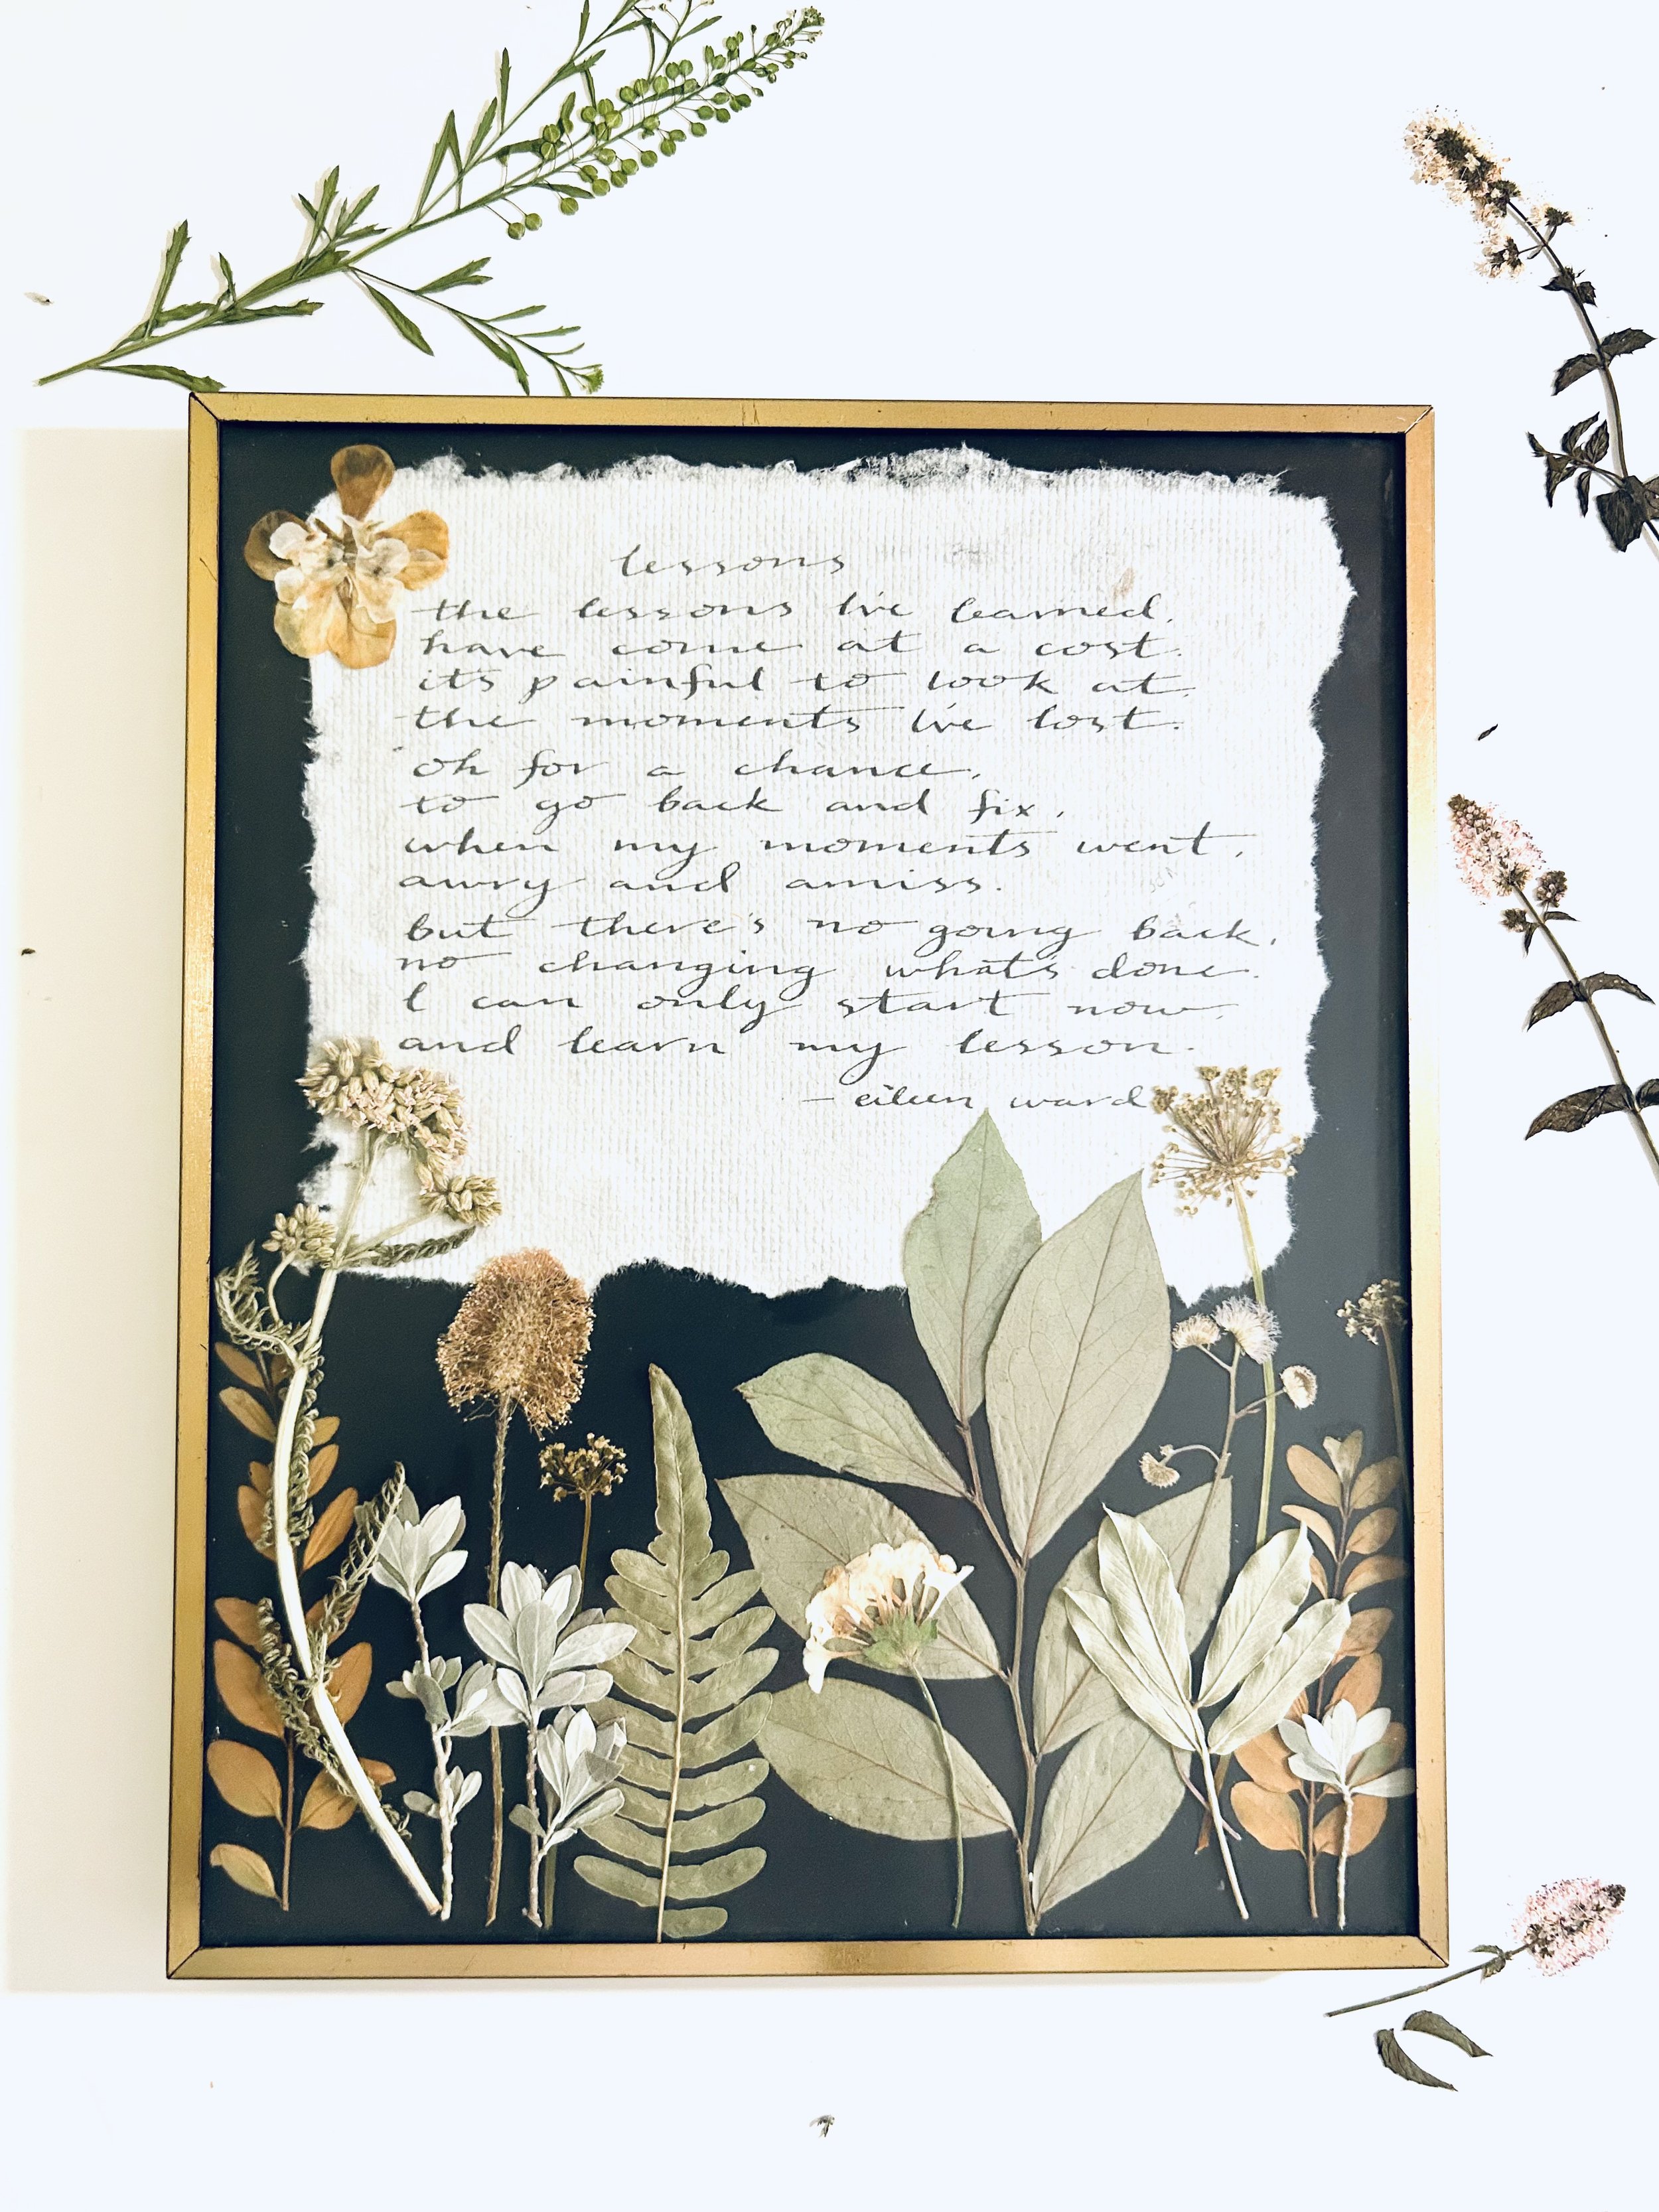 lessons
the lessons I've learned,
have come at a cost.
it's painful to look at,
the moments I've lost.
oh for a chance,
to go back and fix,
when my moments went,
awry and amiss.
but there's no going back,
no changing what's done.
I can only start now,
and learn my lesson.
- eileen ward